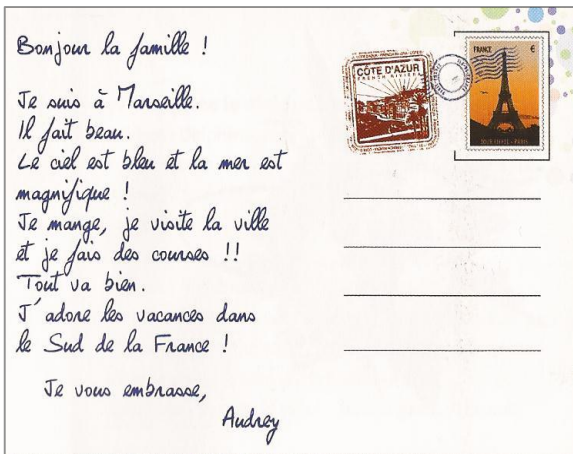 Bonjour la famille !
Je suis à Marseille.
Il fait beau.
Le ciel est bleu et la mer est
magnifique !
Je mange, je visite la ville
et je fais des courses !!
Tout va bien.
J'adore les vacances dans
le Sud de la France !
Je vous embrasse,
Audrey
CÔTE D'AZUR
FRENCH RIVIERA
FRANCE €